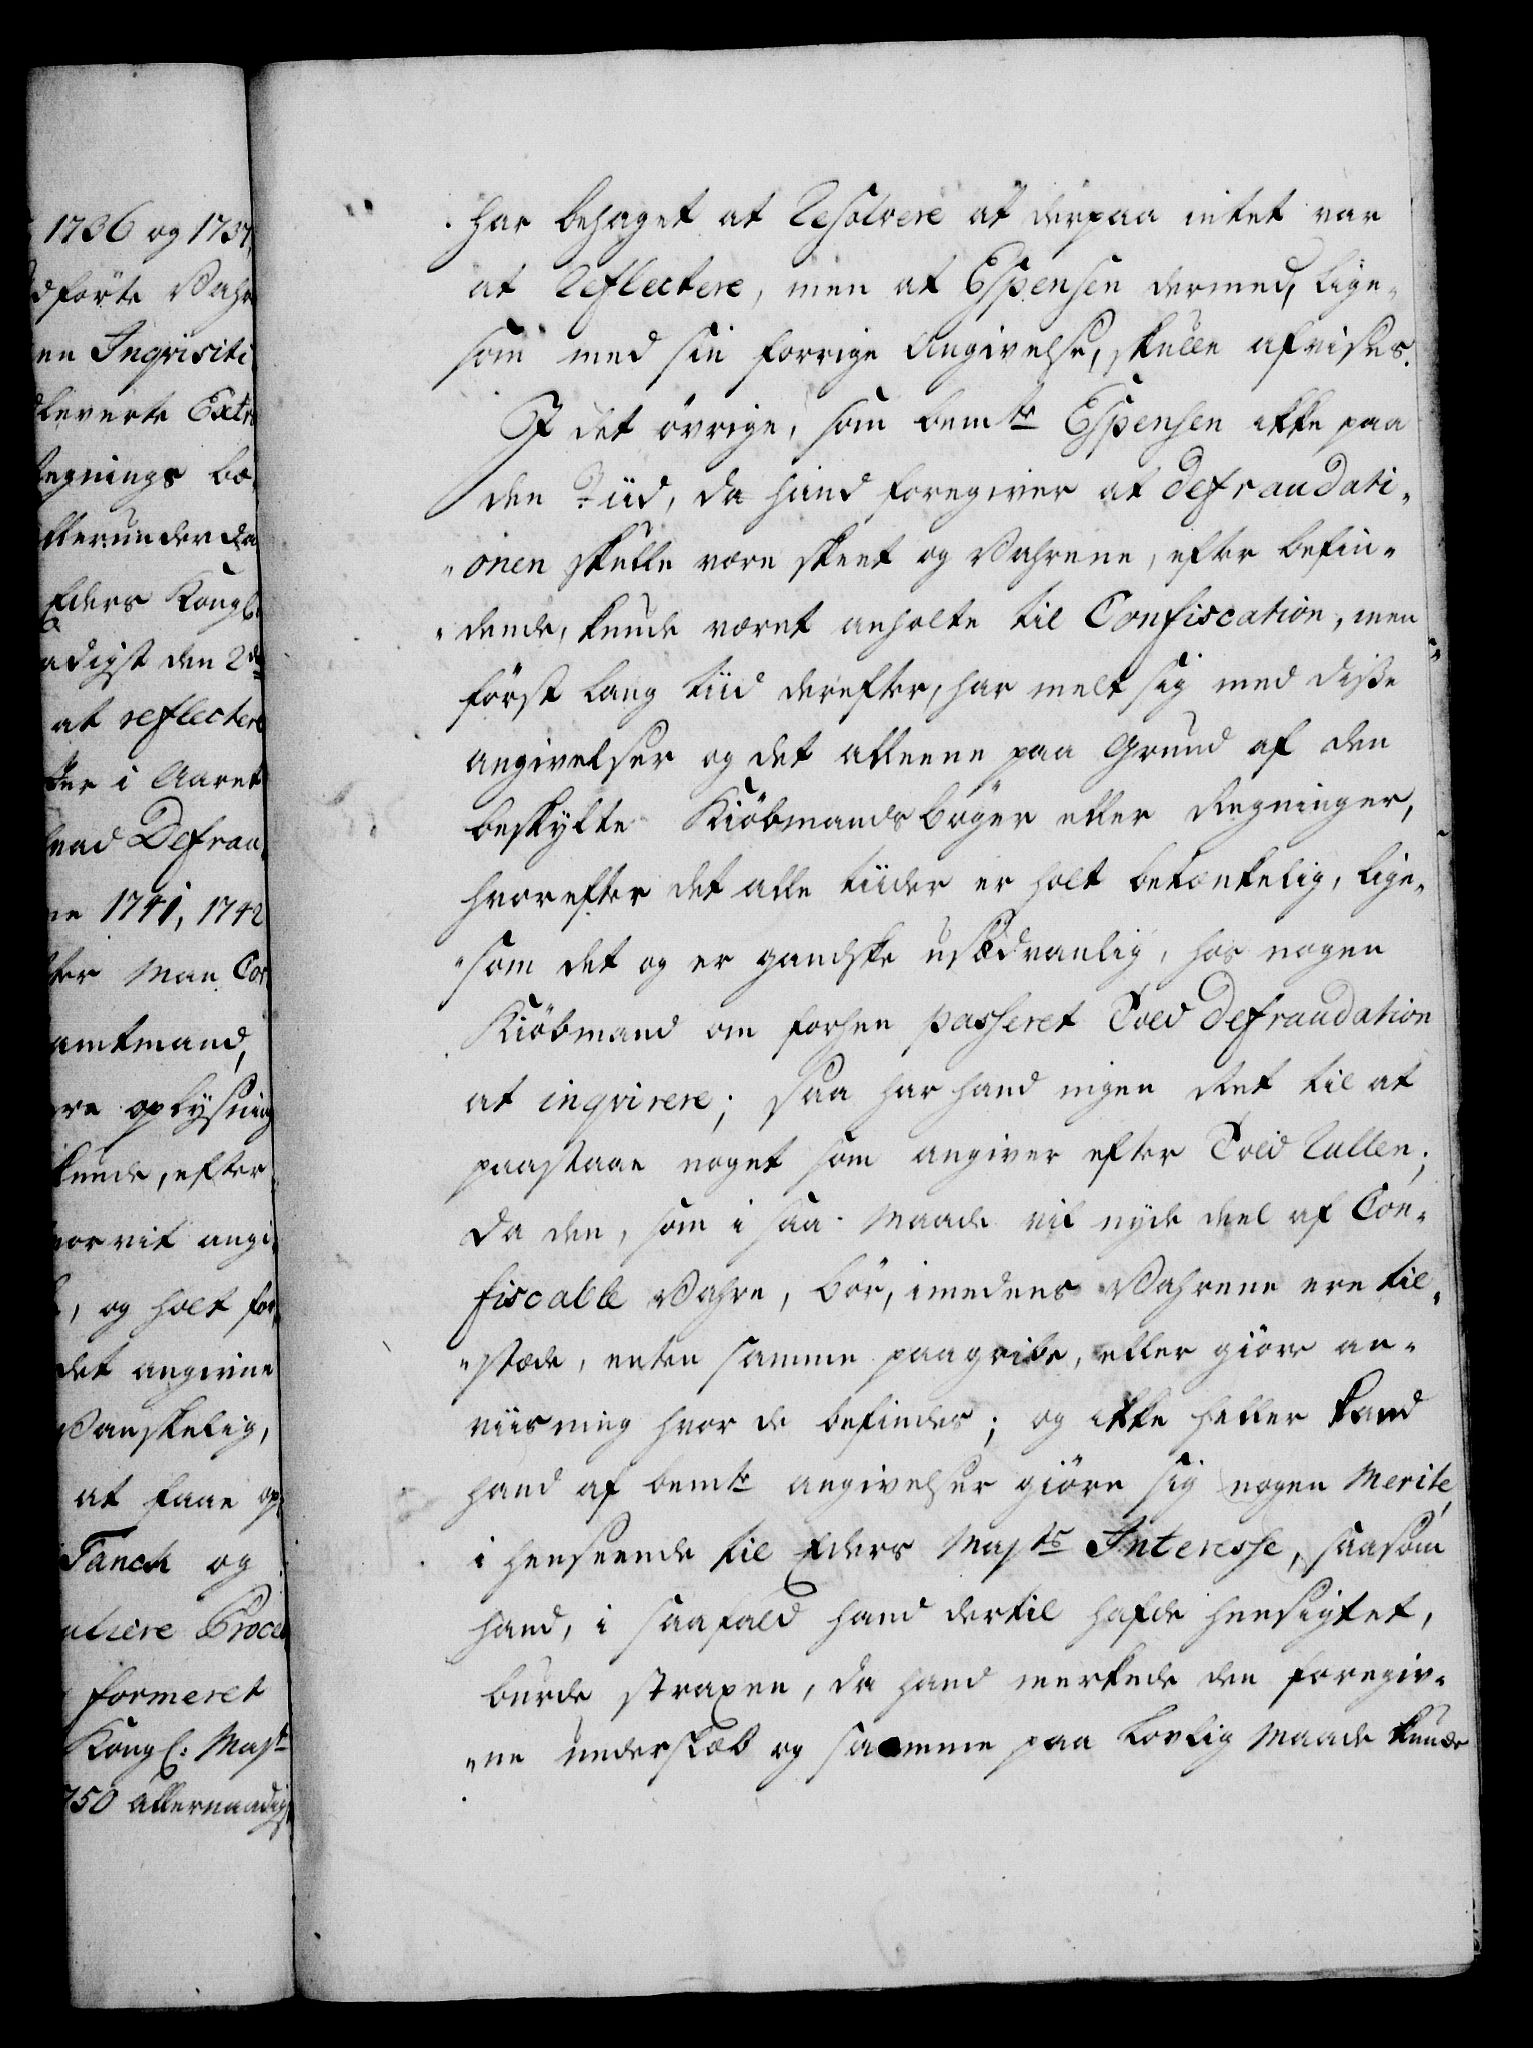 1736 og 1737,
dførte Vahr
en Inqvisiti
leverte Extr
Regnings bø,
llerunder da
Eders Kongl.
adigst den 2de
at reflectere
ker i Aaret
hvad Defrau,
ne 1741, 1742
ter Man Con
amtmand,
re oplysning
kunde, efter
hvor vit angi,
, og holt for,
det angivne
Vanskelig,
at faae op,
Tanck og
Proces
formeret
Kongl: Mayts
750 allernaadigst
har behaget at Resolvere at derpaa intet var
at Reflectere, men at Espensen dermed, lige,
som med sin forrige Angivelse, skulle afvises.
I det øvrige, som bemte Espensen ikke paa
den Tiid, da hand foregiver at defraudati,
„onen skulle være skeet og Vahrene, efter befin„
„dende, kunde været anholte til Confiscation, men
først lang tiid derefter, har melt sig med disse
angivelser og det alleene paa Grund af den
beskylte Kiøbmands bøger eller Regninger,
hvorefter det alle tiider er holt betænkelig, lige„
„som det og er gandske usædvanlig, hos nogen
Kiøbmand om forhen passeret Told defraudation
at inqvirere; saa har hand ingen Ret til at
paastaae noget som angiver efter Told Rullen;
da den, som i saa Maade vil nyde deel af Con„
fiscable Vahre, bør, imedens Vahrene ere til„
„stæde, enten samme paagribe, eller giøre an„
viisning hvor de befindes; og ikke heller kand
hand af bemte angivelser giøre sig nogen Merite,
i henseende til Eders Mayts Interesse, saasom
hand, i saafald hand dertil hafde hensigtet,
burde straxen, da hand merkede den foregiv„
„ne underslæb og samme paa lovlig Maade kunde